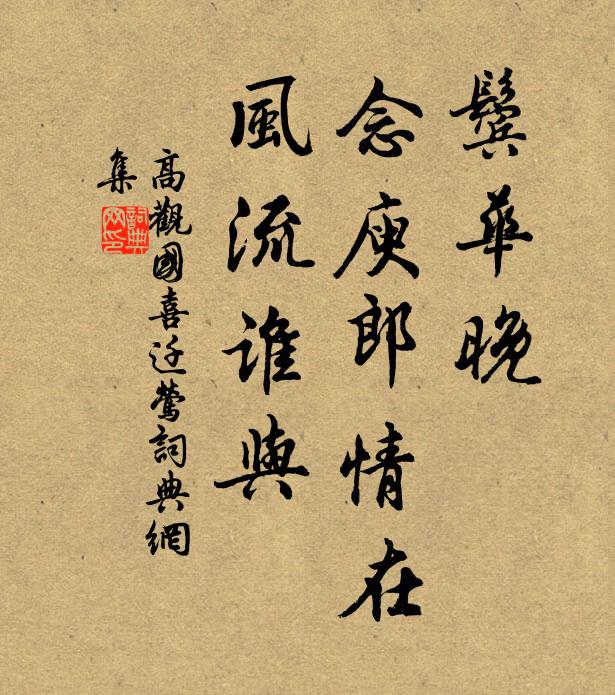 鬢華晚
念庾郎情在
風流誰與
高觀國喜迁鶯詞典網
集
詞典
网印